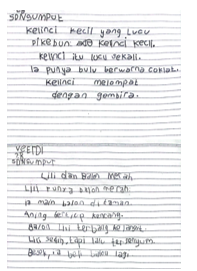 SONGUMPUT
Kelinci kecil yang lucu
Dikebun ada kelinci kecil.
Kelinci itu lucu sekali.
Ia punya bulu berwarna coklat.
Kelinci melompat
dengan gembira.
SONGUMPUT
Lili dan Balon Merah
Lili punya balon merah.
Ia main balon di taman.
Angin bertiup kencang.
Balon Lili terbang
Lili sedih, tapi lalu tersenyum.
Besok, ia beli balon lagi.